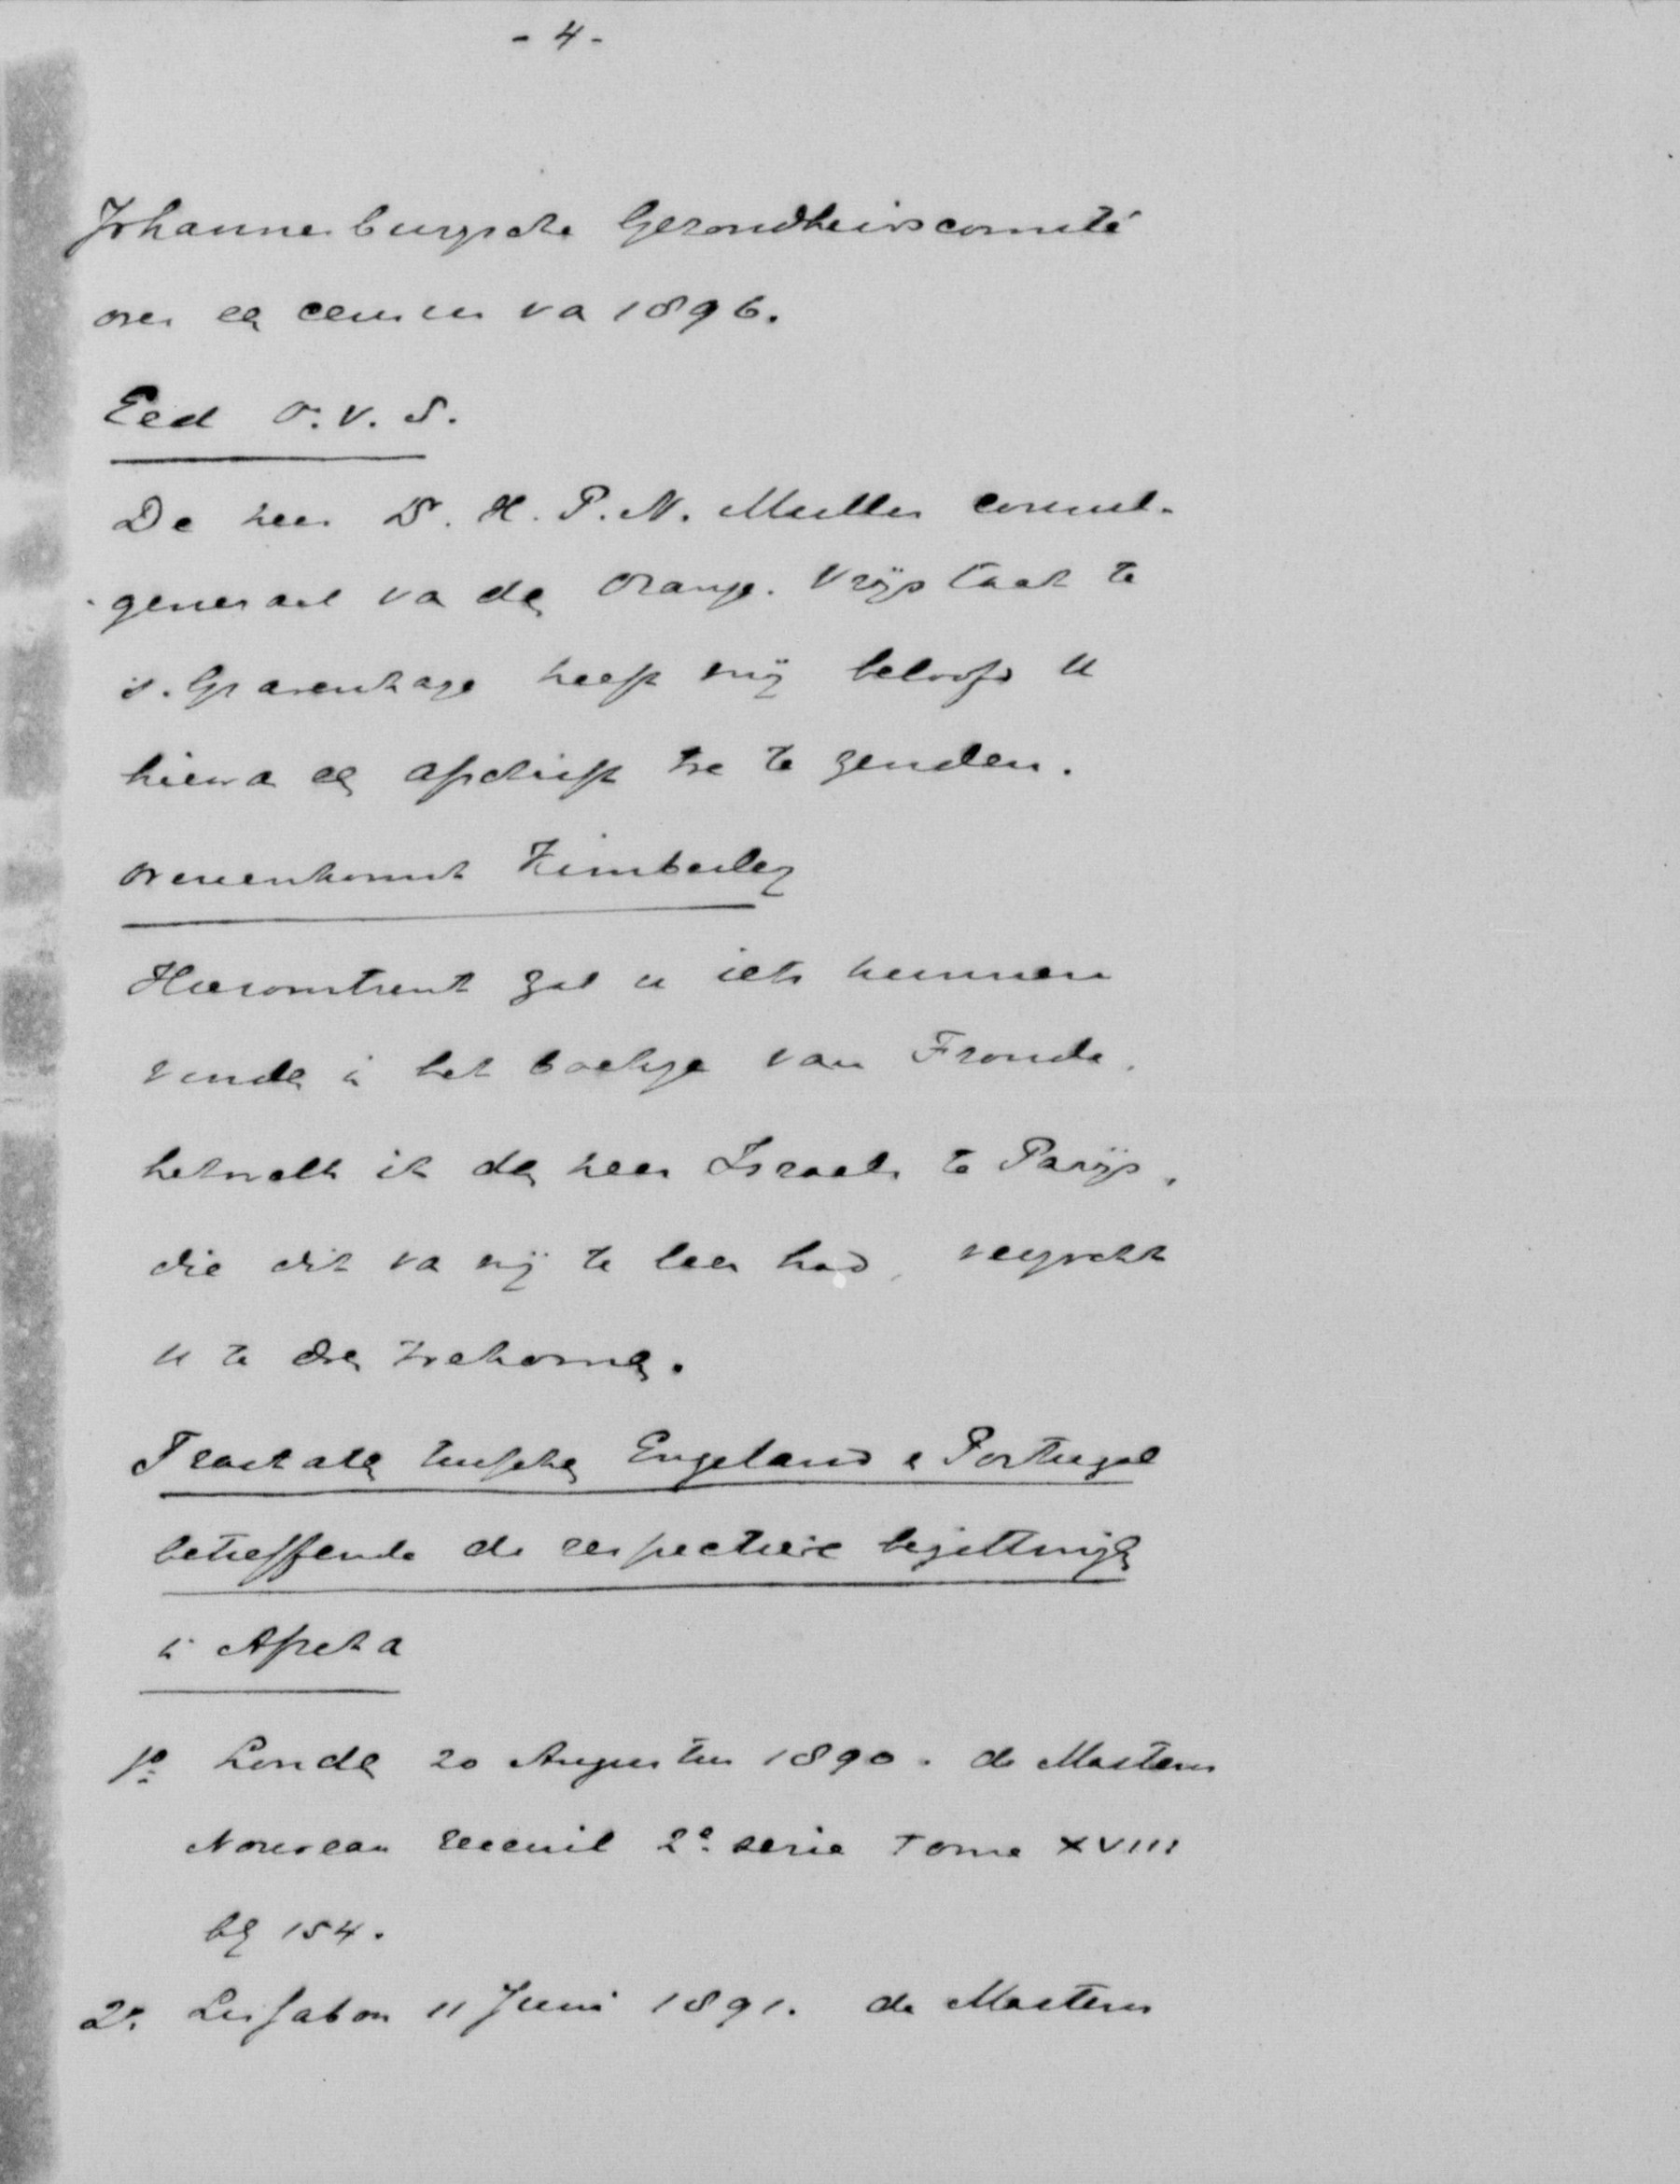 - 4 -
Johannesburgsche Gezondheidscomité
over een census van 1896.
Eed O.V.S.
De heer Dr. H. P. N. Muller consul-
generaal van den Oranje Vrijstaat te
's Gravenhage heeft mij beloofd U
hiervan een afschrift toe te zenden.
Overeenkomst Kimberley
Hieromtrent zal u iets kunnen
vinden in het boekje van Froude,
hetwelk ik den heer Israels te Parijs,
die dit van mij te leen had, verzocht
U te doen toekomen.
Tractaten tusschen Engeland en Portugal
betreffende de respectieve bezittingen
in Afrika
1o Londen 20 Augustus 1890. de Martens
Nouveau recueil 2e serie Tome XVIII
blz 154.
2o. Lissabon 11 Juni 1891. de Martens